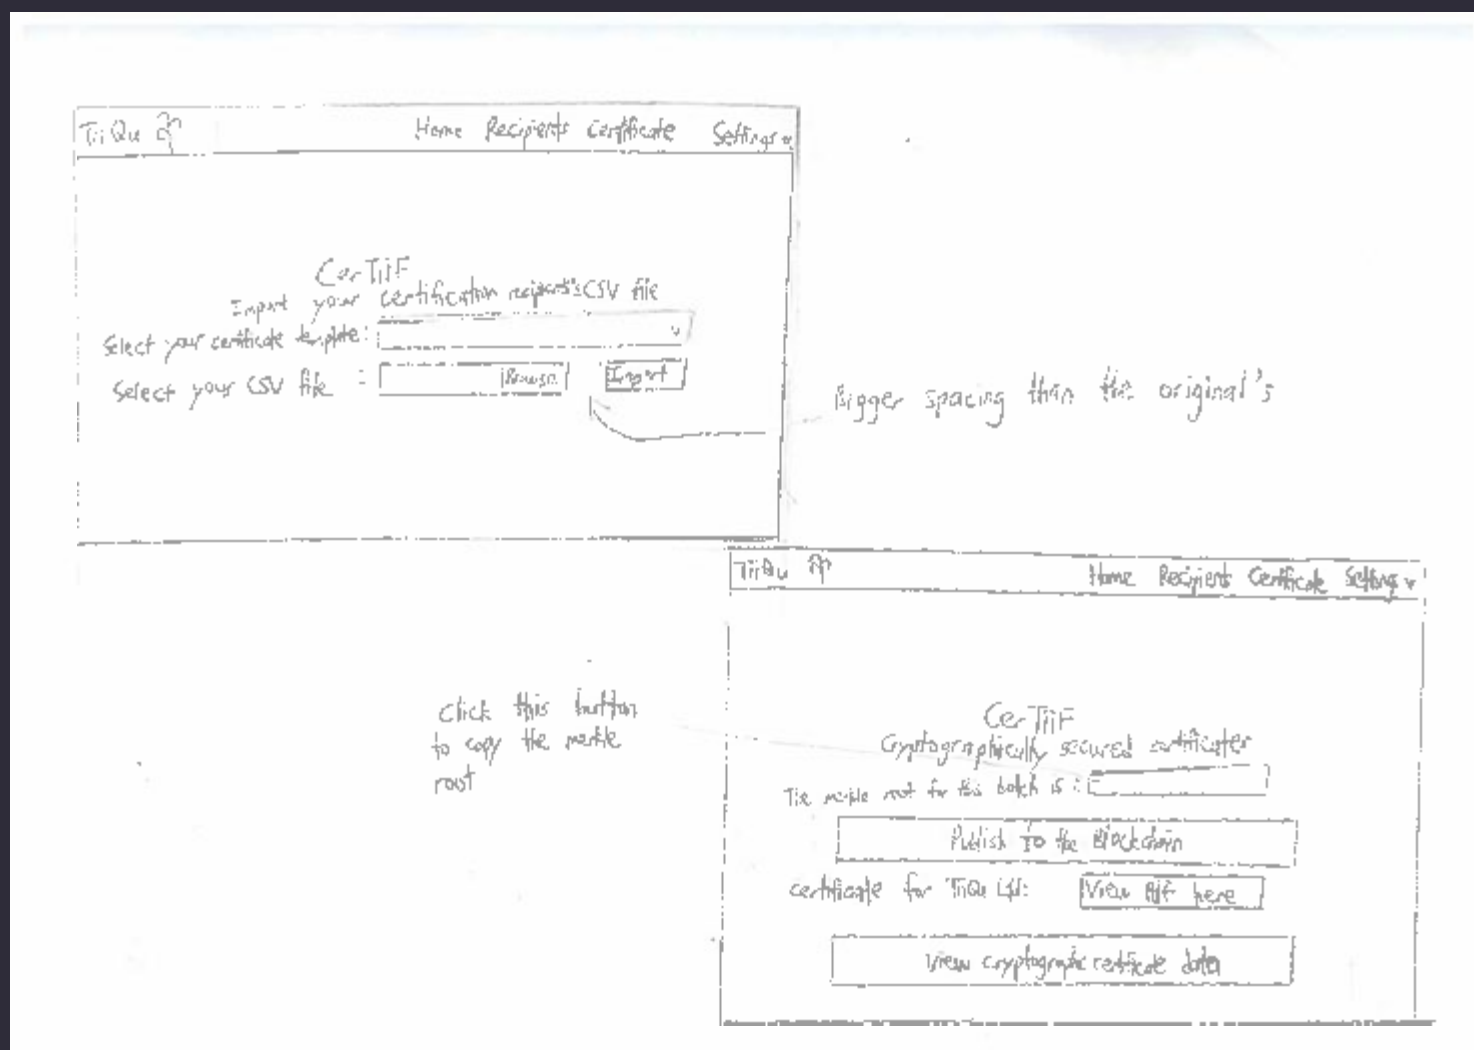 TiiQu
Home Recipients Certificate Settings
CerTiiF
Import your certification recipient's CSV file
Select your certificate template:
Select your CSV file :
Browse
Import
Bigger spacing than the original's
TiiQu
Home Recipients Certificate Settings
Click this button
to copy the merkle
root
CerTiiF
Cryptographically secured certificates
The merkle root for this batch is :
Publish To the Blockchain
certificate for TiiQu
View PDF here
View cryptographic certificate data